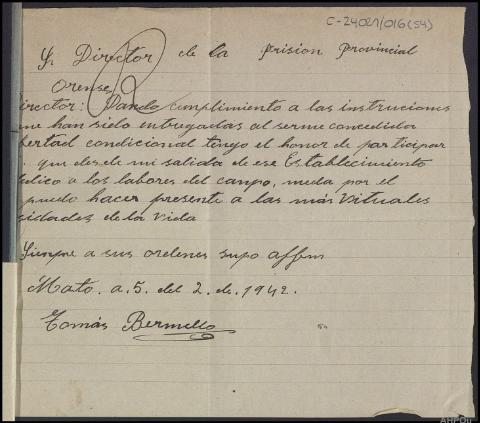 C-24021/016(54)
Sr Director de la prision provincial
Orense
irector: Dando cumplimiento a las instruciones
ue han sido entregadas al serme concedida
bertad condicional tengo el honor de participar
que desde mi salida de ese Establecimiento
dico a los labores del campo, por el
puedo hacer presente a las más vituales
sidades de la vida
Siempre a sus ordenes supo affm
Mato. a. 5. del 2. de. 1942.
Tomás Bermello
AHPOu